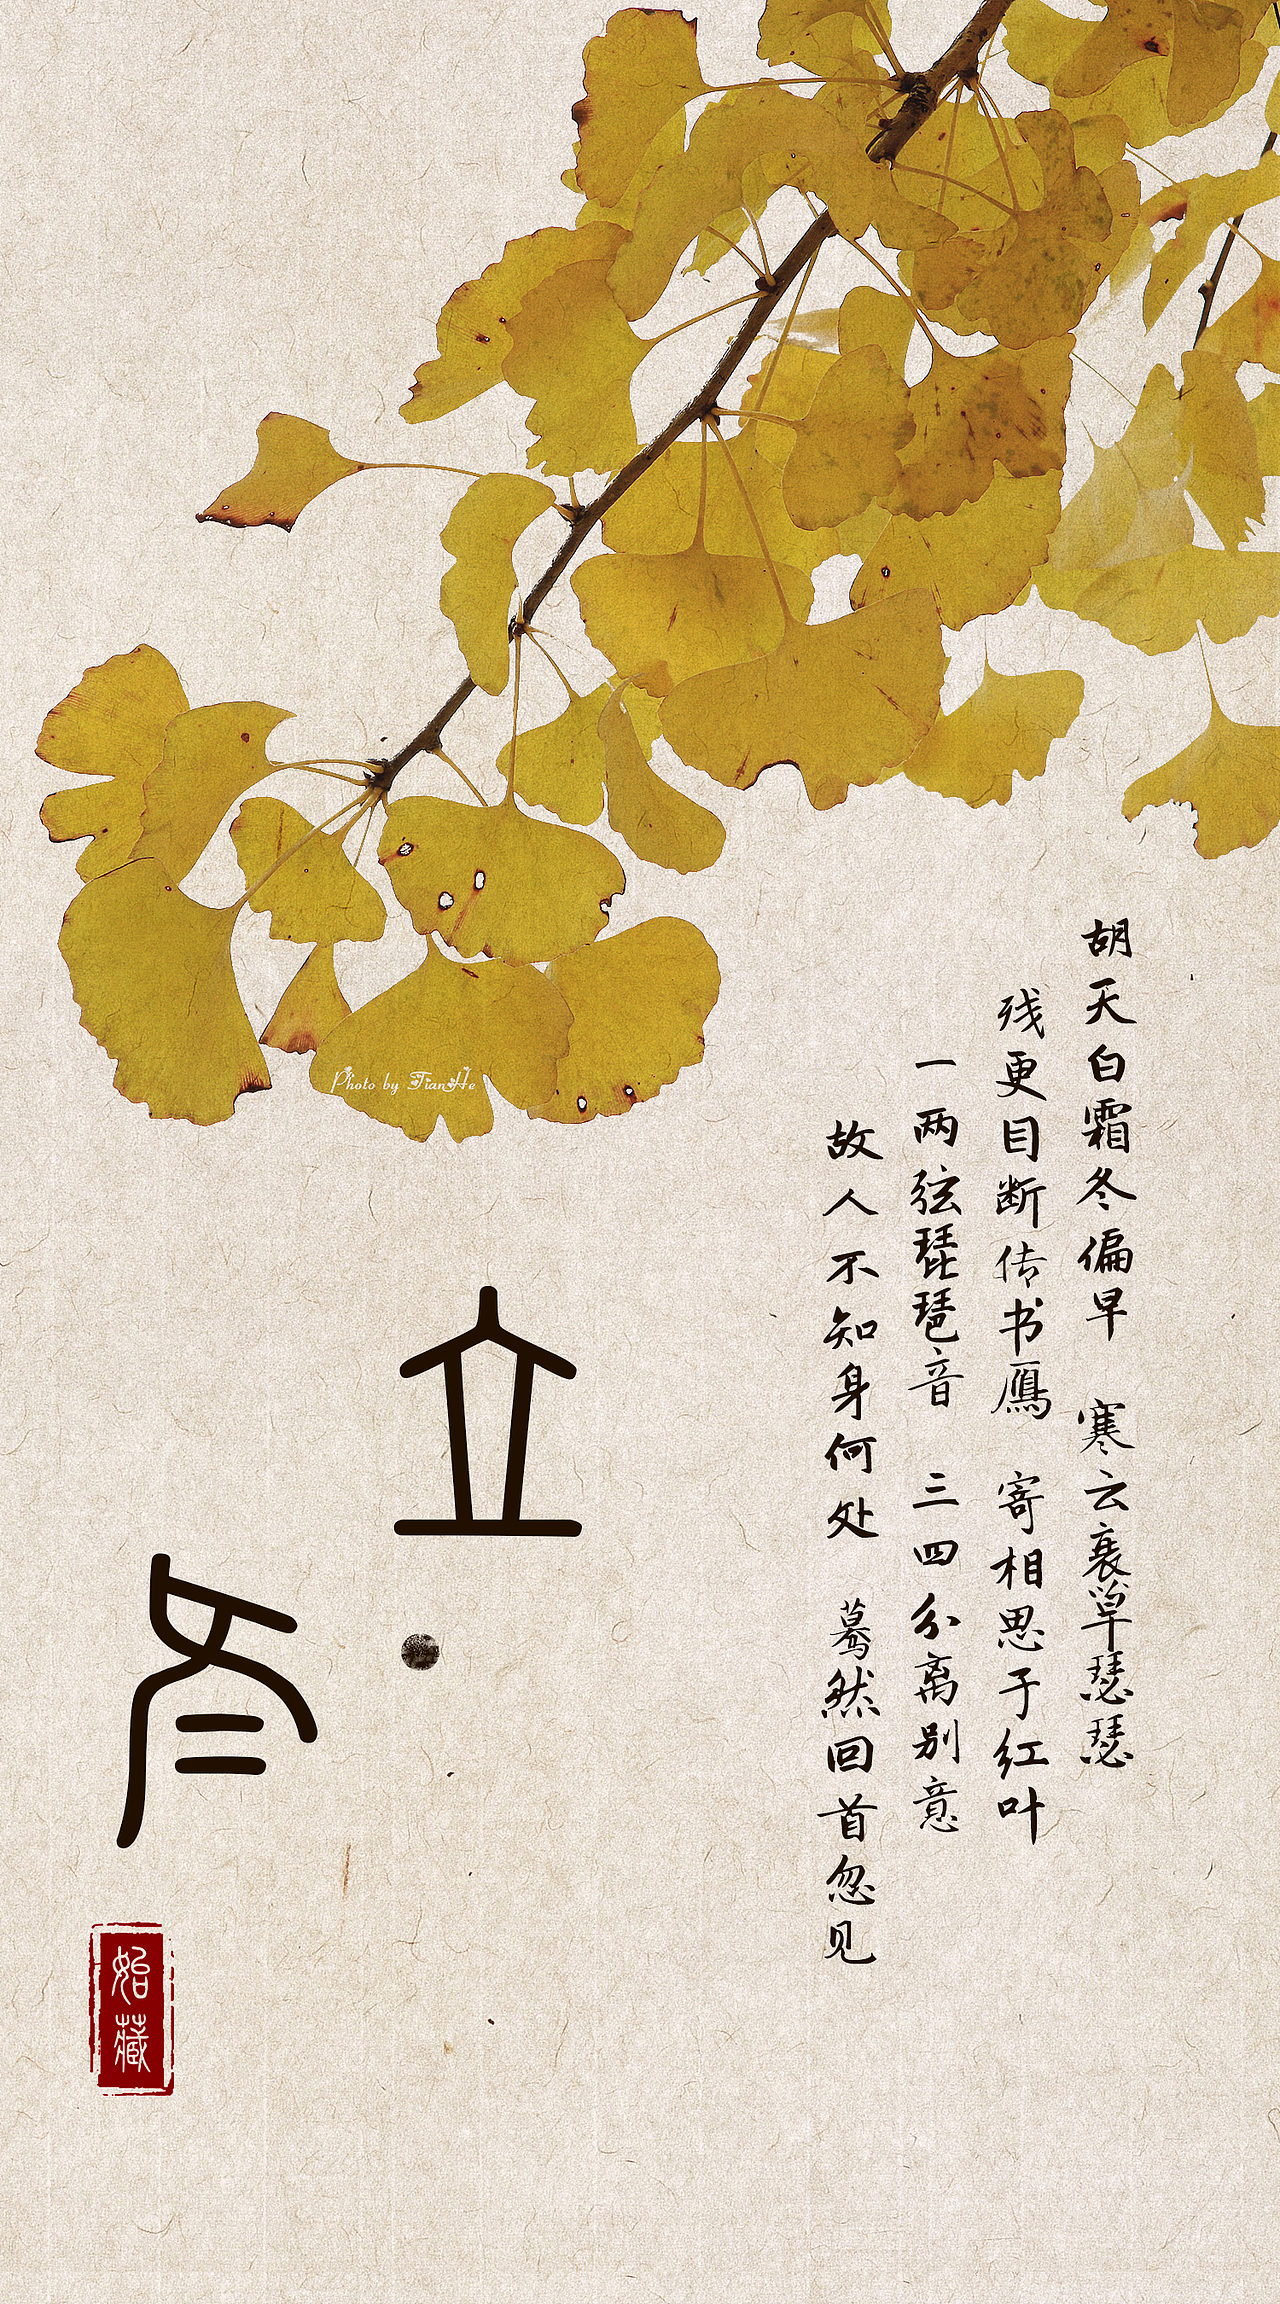 胡天白霜冬偏早 寒云衰草瑟瑟
残更目断传书雁 寄相思于红叶
一两弦琵琶音 三四分离别意
故人不知身何处 蓦然回首忽见
立
冬
始藏
Photo by TianHe